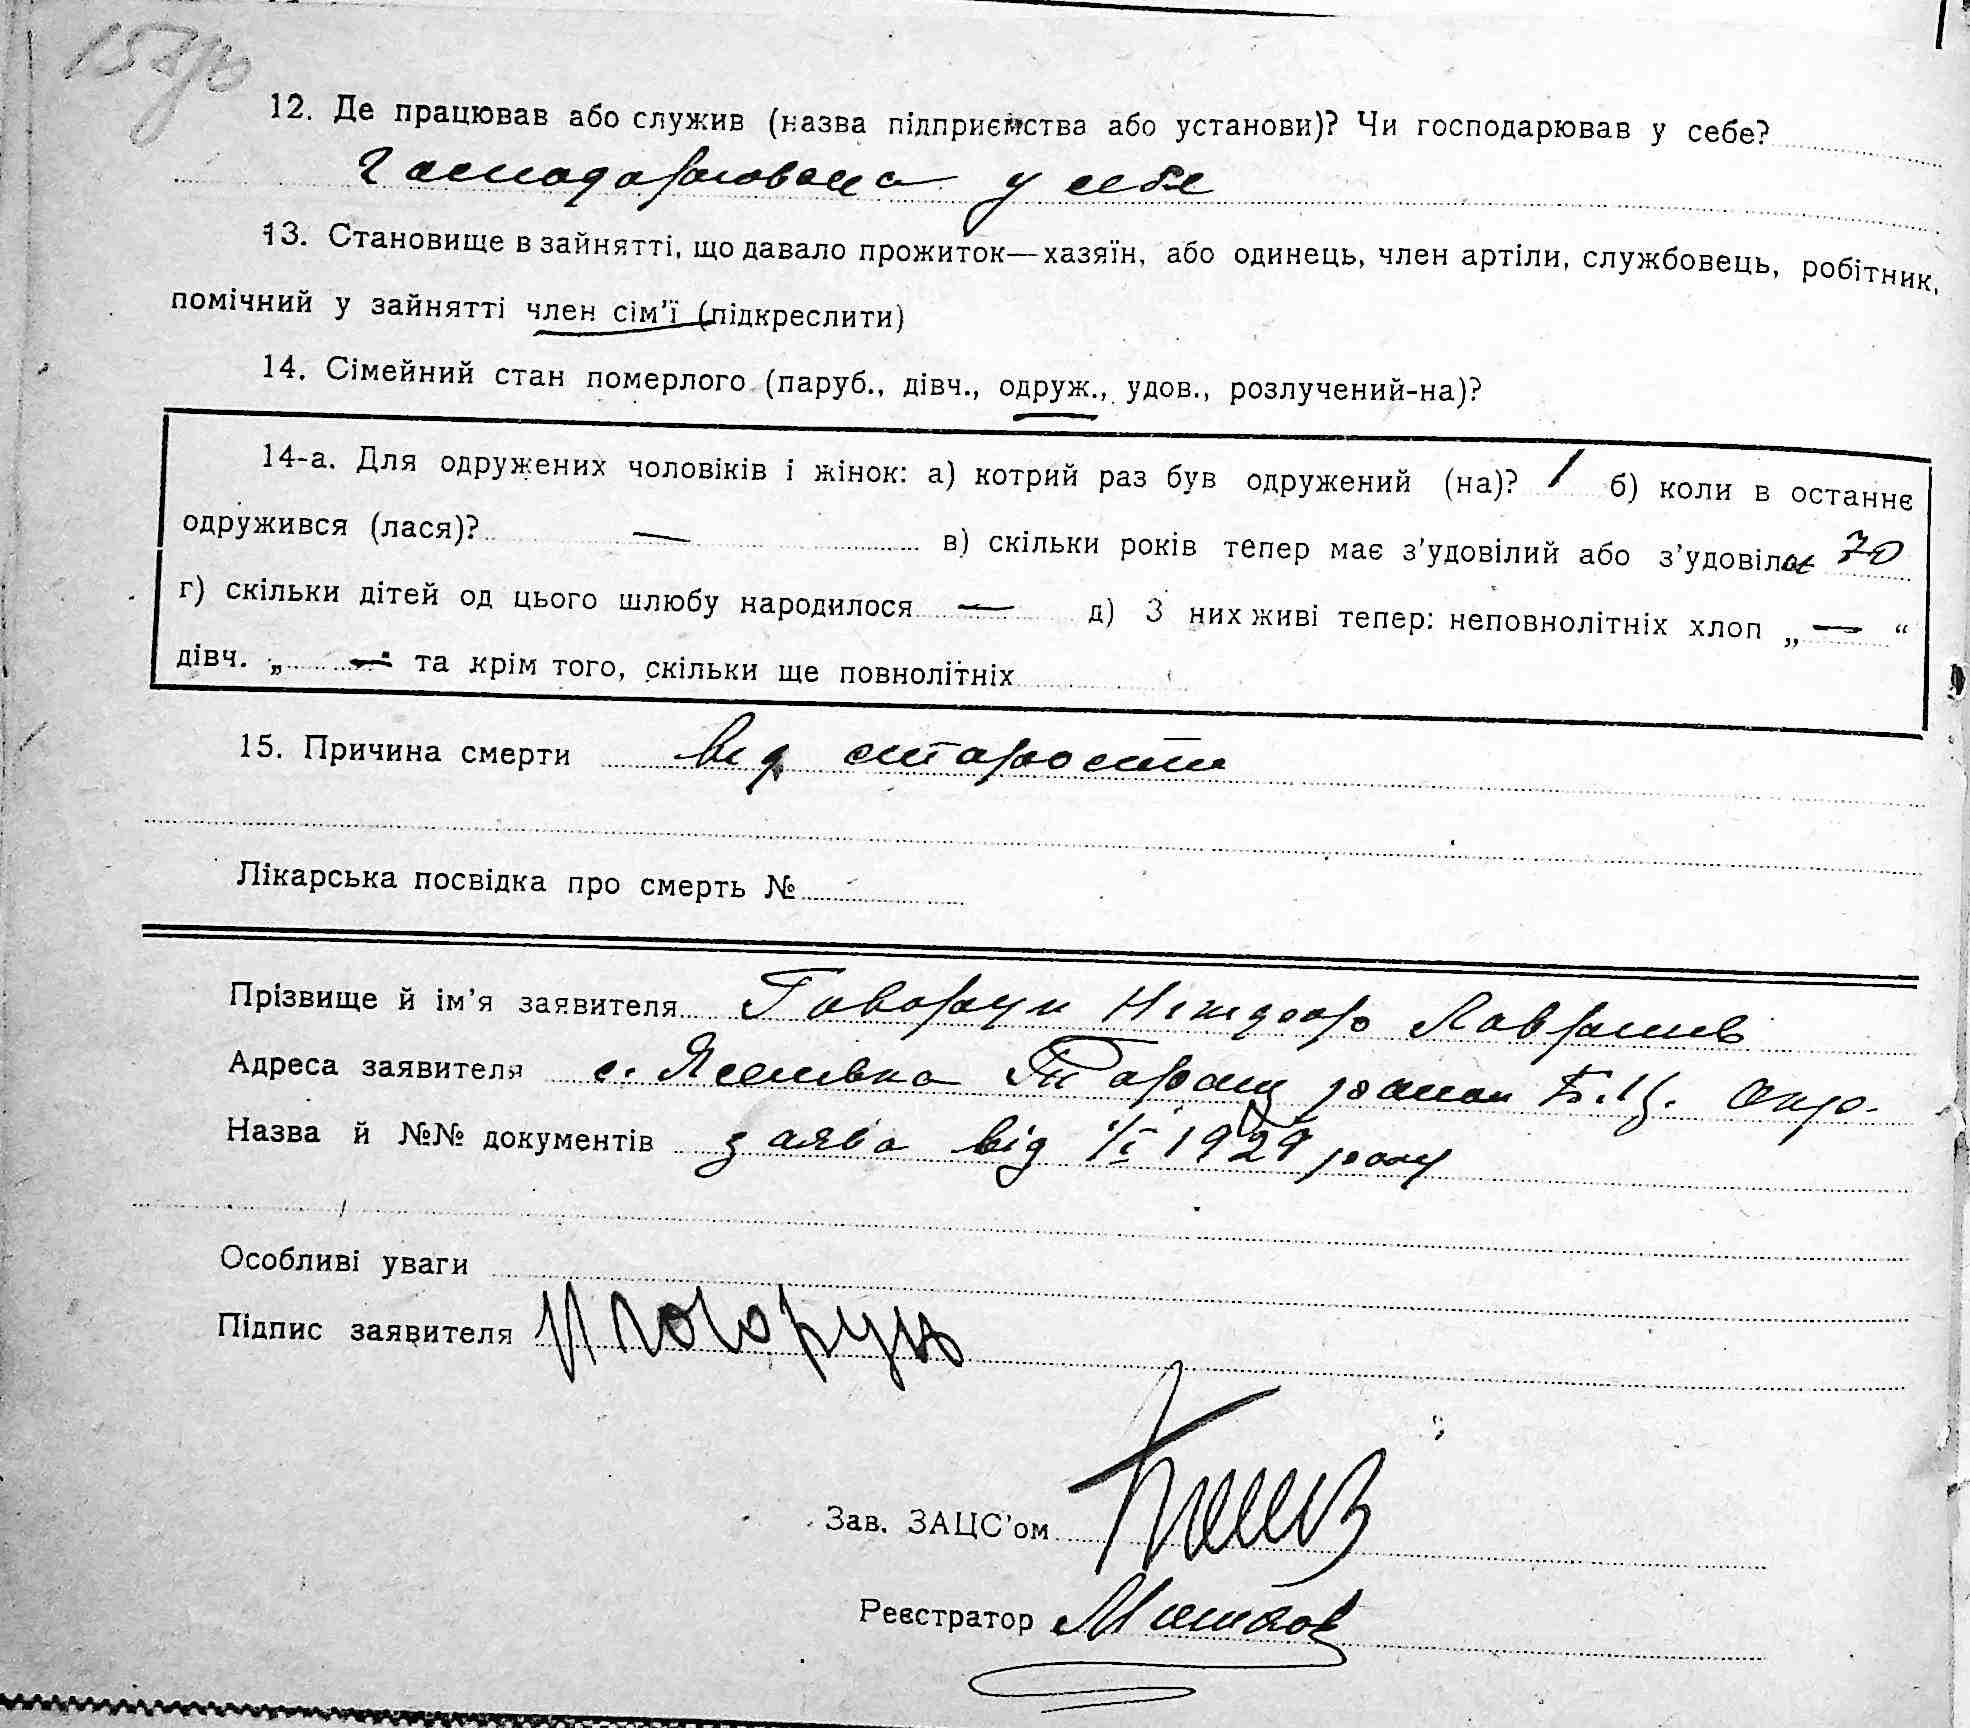 12. Де працював або служив (назва підприємства або установи)? Чи господарював у себе?
господарювала у себе
13. Становище в зайнятті, що давало прожиток—хазяїн, або одинець, член артіли, службовець, робітник,
помічний у зайнятті член сім'ї (підкреслити)
14. Сімейний стан померлого (паруб., дівч., одруж., удов., розлучений-на)?
14-а. Для одружених чоловіків і жінок: а) котрий раз був одружений (на)? 1 б) коли в останнє
одружився (лася)? — в) скільки років тепер має з'удовілий або з'удовіла 70
г) скільки дітей од цього шлюбу народилося — д) З них живі тепер: неповнолітніх хлоп „ — “
дівч. „ — “ та крім того, скільки ще повнолітніх
15. Причина смерти від старости
Лікарська посвідка про смерть №
Прізвище й ім'я заявителя Говорун Лаврінів
Адреса заявителя с. Ясенівка Таращ району Б.Ц. Окр.
Назва й №№ документів заява від 1/I 1929 року
Особливі уваги
Підпис заявителя
Зав. ЗАЦС'ом
Реєстратор